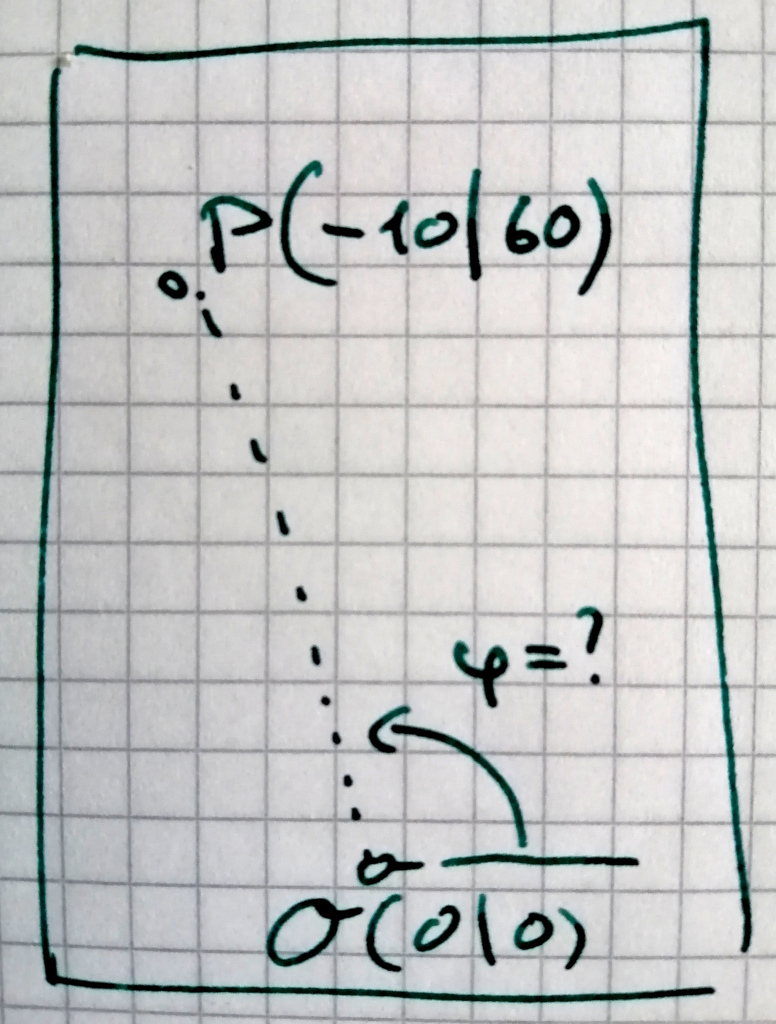 P(-10|60)
φ=?
O(0|0)